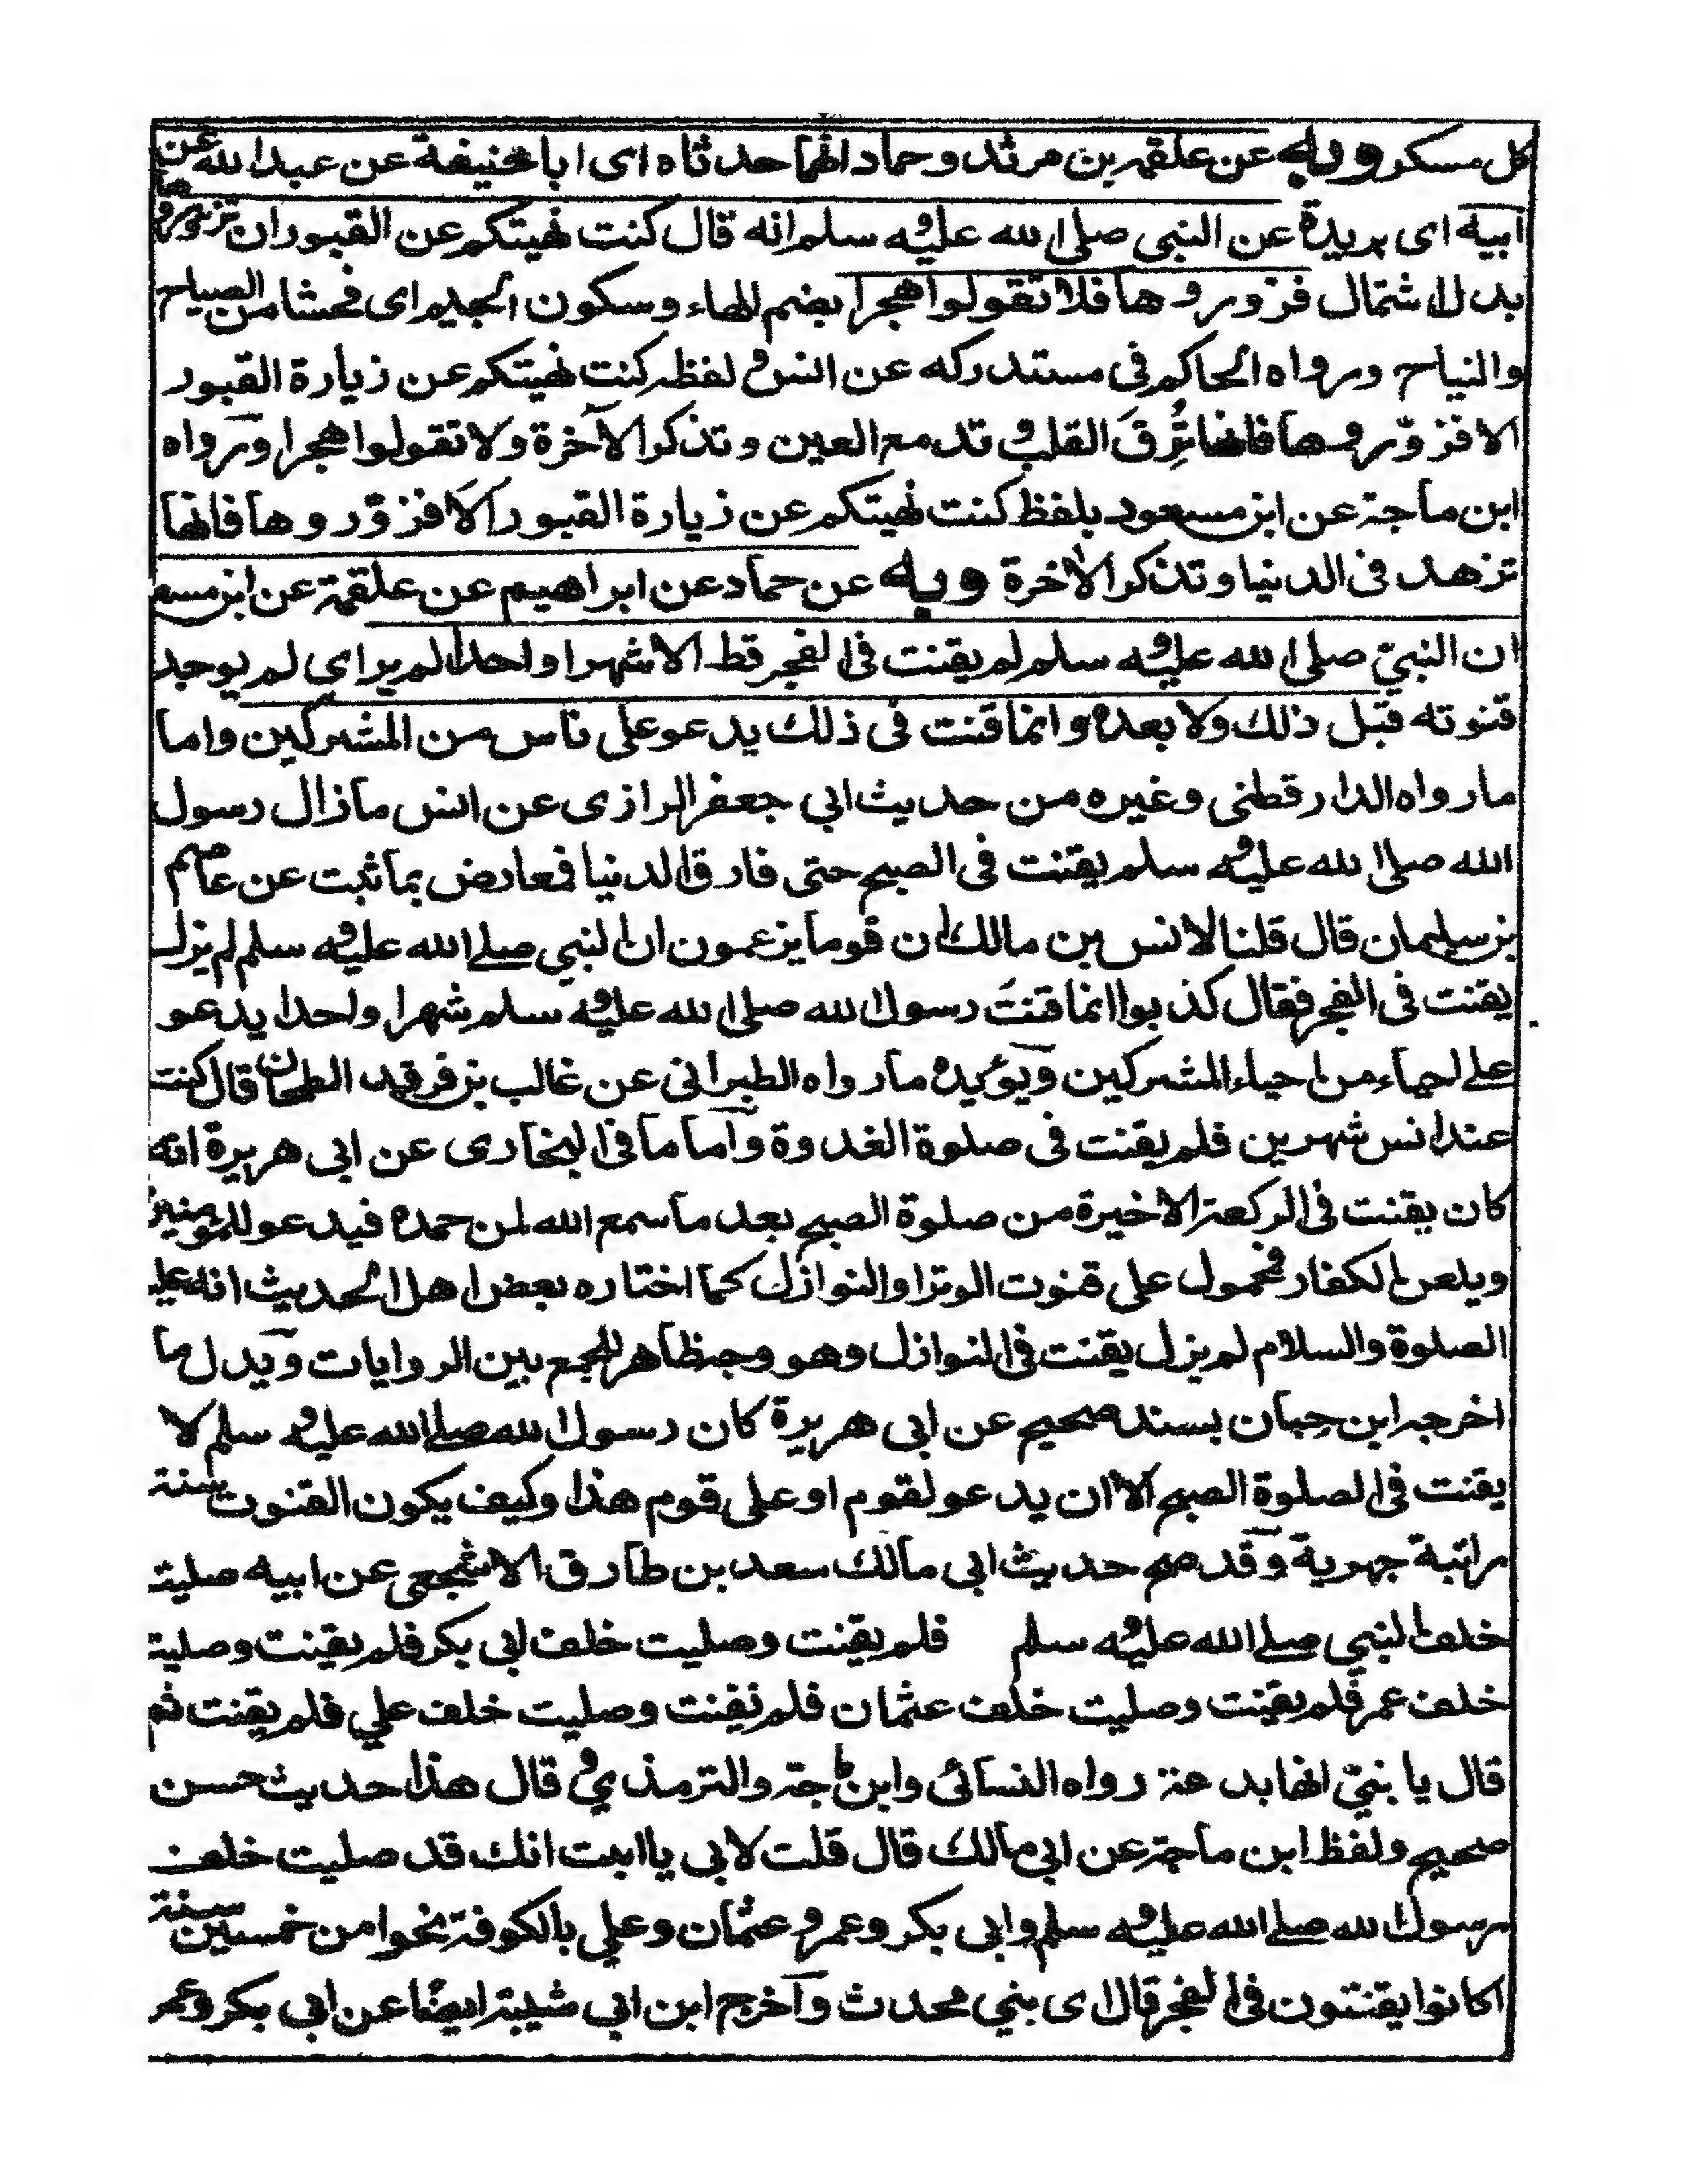 كل مسكر وبه عن علقمة بن مرثد وحماد انهما حدثاه اى ابا حنيفة عن عبدالله عن
ابيه اى بريدة عن النبى صلى الله عليه وسلم انه قال كنت نهيتكم عن القبور ان تزوروها
بدل اشتمال فزوروها فلا تقولوا هجرا بضم الهاء وسكون الجيم اى فحشا من الصياح
والنياح ورواه الحاكم فى مستدركه عن انس ولفظه كنت نهيتكم عن زيارة القبور
الا فزوروها فانها ترق القلب وتدمع العين وتذكر الآخرة ولا تقولوا هجرا ورواه
ابن ماجة عن ابن مسعود بلفظ كنت نهيتكم عن زيارة القبور الا فزوروها فانها
تزهد فى الدنيا وتذكر الاخرة وبه عن حماد عن ابراهيم عن علقمة عن ابن مسعو
ان النبىّ صلى الله عليه وسلم لم يقنت فى الفجر قط الا شهرا واحدا لم ير اى لم يوجد
قنوته قبل ذلك ولا بعده وانما قنت فى ذلك يدعو على ناس من المشركين واما
ما رواه الدارقطنى وغيره من حديث ابى جعفر الرازى عن انس ما زال رسول
الله صلى الله عليه وسلم يقنت فى الصبح حتى فارق الدنيا فمعارض بما ثبت عن عاصم
بن سليمان قال قلنا لانس بن مالك ان قوما يزعمون ان النبي صلى الله عليه وسلم لم يزل
يقنت فى الفجر فقال كذبوا انما قنت رسول الله صلى الله عليه وسلم شهرا واحدا يدعو
على احياء من احياء المشركين ويؤيده ما رواه الطبرانى عن غالب بن فرقد الطحان قال كنت
عند انس شهرين فلم يقنت فى صلوة الغدوة وأما ما فى البخارى عن ابى هريرة انه
كان يقنت فى الركعة الاخيرة من صلوة الصبح بعد ما سمع الله لمن حمده فيدعو للمومنين
ويلعن الكفار فمحمول على قنوت الوتر او النوازل كما اختاره بعض اهل الحديث انه عليه
الصلوة والسلام لم يزل يقنت فى النوازل وهو وجه ظاهر للجمع بين الروايات ويدل ما
اخرجه ابن حبان بسند صحيح عن ابى هريرة كان رسول الله صلى الله عليه وسلم لا
يقنت فى الصلوة الصبح الا ان يدعو لقوم او على قوم هذا وكيف يكون القنوت سنة
راتبة جهرية وقد صح حديث ابى مالك سعد بن طارق الاشجعى عن ابيه صليت
خلف النبي صلى الله عليه وسلم فلم يقنت وصليت خلف ابى بكر فلم يقنت وصليت
خلف عمر فلم يقنت وصليت خلف عثمان فلم يقنت وصليت خلف علي فلم يقنت ثم
قال يا بنيّ انها بدعة رواه النسائى وابن ماجة والترمذي وقال هذا حديث حسن
صحيح ولفظ ابن ماجة عن ابى مالك قال قلت لابى يا ابت انك قد صليت خلف
رسول الله صلى الله عليه وسلم وابى بكر وعمر وعثمان وعلي بالكوفة نحوا من خمسين سنة
اكانوا يقنتون فى الفجر قال اى بني محدث وأخرج ابن ابي شيبة ايضا عن ابي بكر وعمر